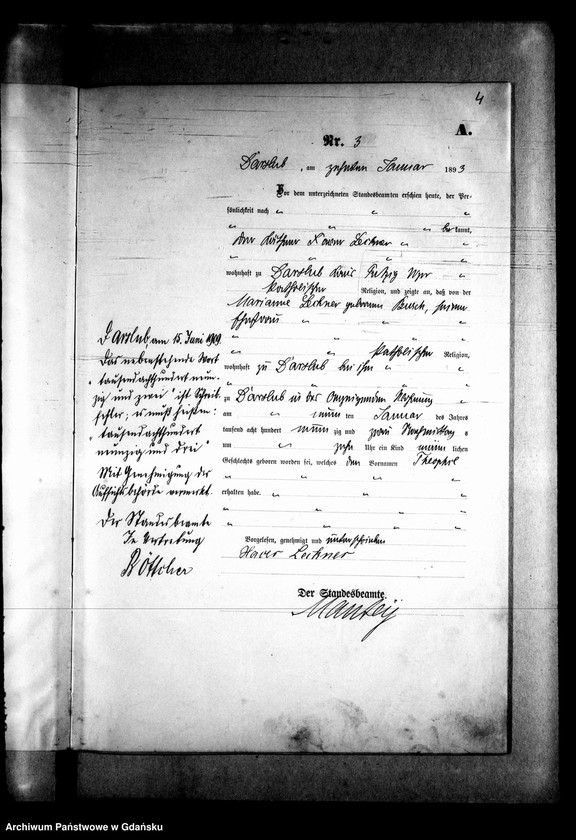 4
A.
Nr. 3
Darslub, am zehnten Januar 1893
Vor dem unterzeichneten Standesbeamten erschien heute, der Per-
sönlichkeit nach " " "
" " " bekannt,
der Käthner Xaver Leckner "
" " "
wohnhaft zu Darslub Kreis Putzig Wpr "
katholischer Religion, und zeigte an, daß von der
Marianne Leckner geborenen Busch, seiner
Ehefrau " " "
" " "
" katholischer Religion,
wohnhaft zu Darslub bei ihm "
" " "
zu Darslub in der Wohnung
am " neun ten Januar des Jahres
tausend acht hundert neun zig und zwei Nachmittag s
um " zehn Uhr ein Kind männ lichen
Geschlechts geboren worden sei, welches den Vornamen Theophil
" " "
erhalten habe. " " "
" " "
" " "
Vorgelesen, genehmigt und unterschrieben
Xaver Leckner
Der Standesbeamte.
Manteÿ
Darslub, am 15. Juni 1909.
Das nebenstehende Wort
"tausendachthundert neun-
zig und zwei" ist Schreib-
fehler; es muß heißen:
"tausendachthundert
neunzig und drei"
Mit Genehmigung der
Aufsichtsbehörde vermerkt.
Der Standesbeamte
In Vertretung
Böttcher
Archiwum Państwowe w Gdańsku